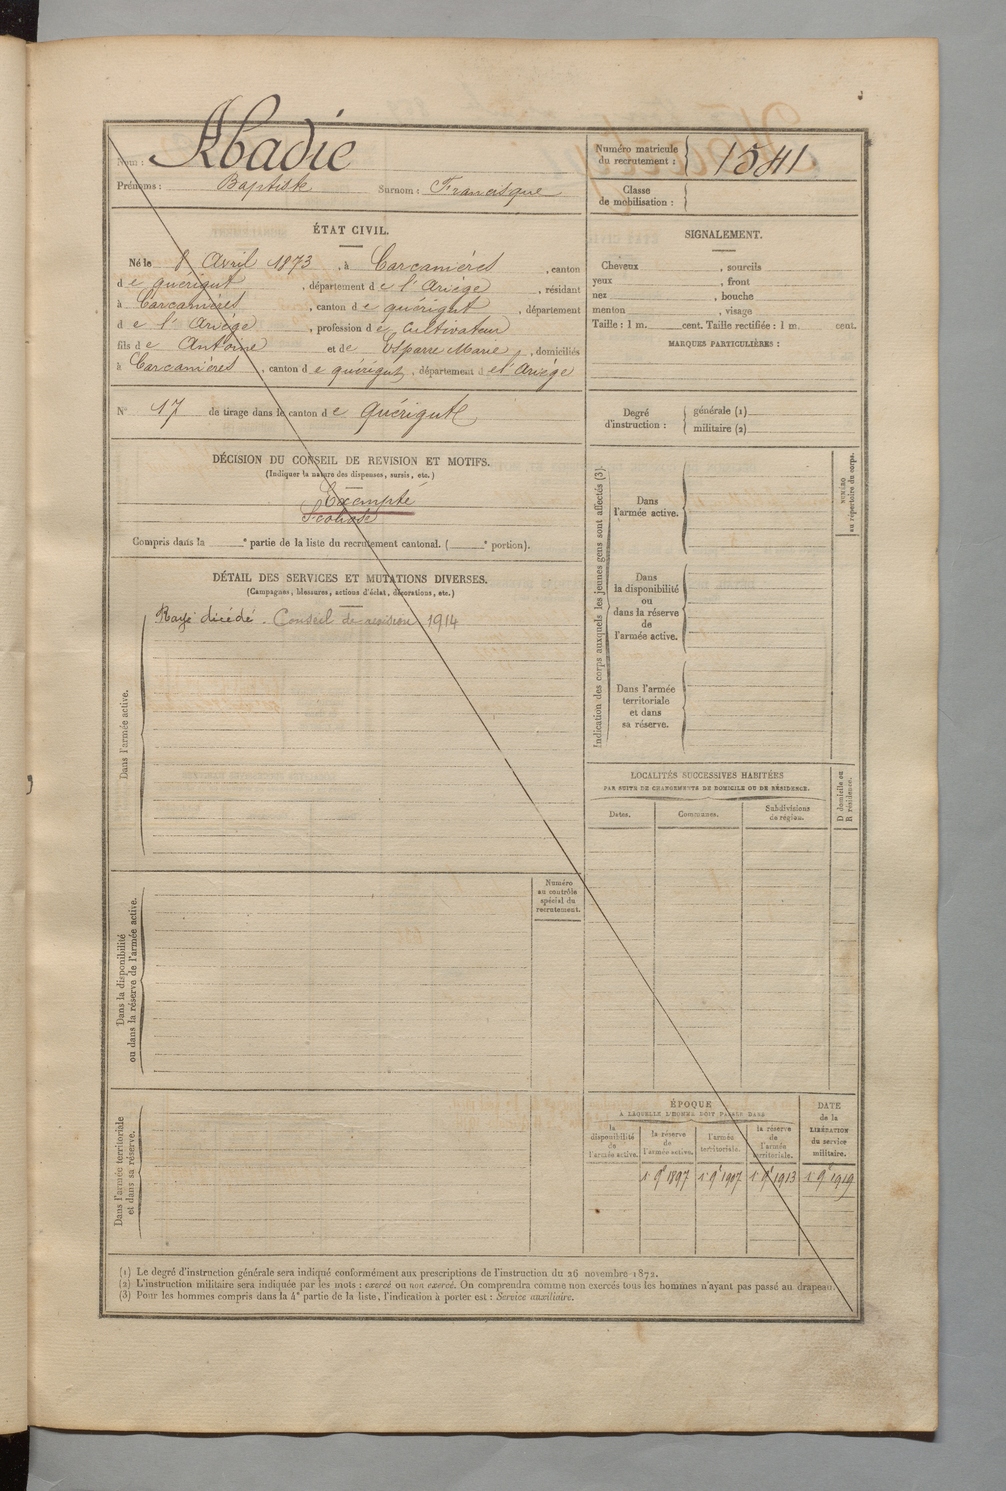 Nom : Abadie
Prénoms : Baptiste Surnom : Francisque
Numéro matricule du recrutement : 1541
Classe de mobilisation :
ÉTAT CIVIL.
Né le 8 Avril 1873, à Carcanières, canton
de quérigut, département de l'Ariège, résidant
à Carcanières, canton de quérigut, département
de l'Ariège, profession de Cultivateur
fils de Antoine et de Esparre Marie, domiciliés
à Carcanières, canton de quérigut, département de l'Ariège
N° 17 de tirage dans le canton de Quérigut
DÉCISION DU CONSEIL DE REVISION ET MOTIFS.
(Indiquer la nature des dispenses, sursis, etc.)
Exempté
Scoliose
Compris dans la e partie de la liste du recrutement cantonal. ( e portion).
DÉTAIL DES SERVICES ET MUTATIONS DIVERSES.
(Campagnes, blessures, actions d'éclat, décorations, etc.)
Dans l'armée active.
Rayé décédé. Conseil de revision 1914
Numéro
au contrôle
spécial du
recrutement.
Dans la disponibilité
ou dans la réserve de l'armée active.
Dans l'armée territoriale
et dans sa réserve.
SIGNALEMENT.
Cheveux , sourcils
yeux , front
nez , bouche
menton , visage
Taille : 1 m. cent. Taille rectifiée : 1 m. cent.
MARQUES PARTICULIÈRES :
Degré d'instruction :
générale (1)
militaire (2)
Indication des corps auxquels les jeunes gens sont affectés (3).
NUMÉRO
au répertoire du corps.
Dans
l'armée active.
Dans
la disponibilité
ou
dans la réserve
de
l'armée active.
Dans l'armée
territoriale
et dans
sa réserve.
LOCALITÉS SUCCESSIVES HABITÉES
PAR SUITE DE CHANGEMENTS DE DOMICILE OU DE RÉSIDENCE.
D domicile ou
R résidence.
Dates. Communes. Subdivisions de région.
ÉPOQUE
A LAQUELLE L'HOMME DOIT PASSER DANS
DATE
de la
LIBÉRATION
du service
militaire.
la disponibilité de l'armée active.
la réserve de l'armée active.
l'armée territoriale.
la réserve de l'armée territoriale.
1 9e 1897 1 9e 1907 1 9e 1913 1 9e 1919
(1) Le degré d'instruction générale sera indiqué conformément aux prescriptions de l'instruction du 26 novembre 1872.
(2) L'instruction militaire sera indiquée par les mots : exercé ou non exercé. On comprendra comme non exercés tous les hommes n'ayant pas passé au drapeau.
(3) Pour les hommes compris dans la 4e partie de la liste, l'indication à porter est : Service auxiliaire.